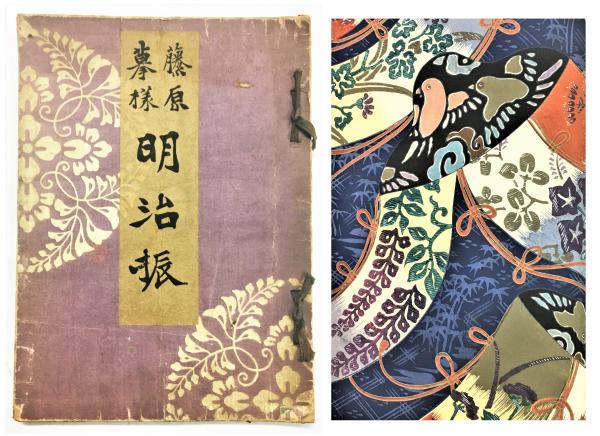 藤原
摹様
明治振